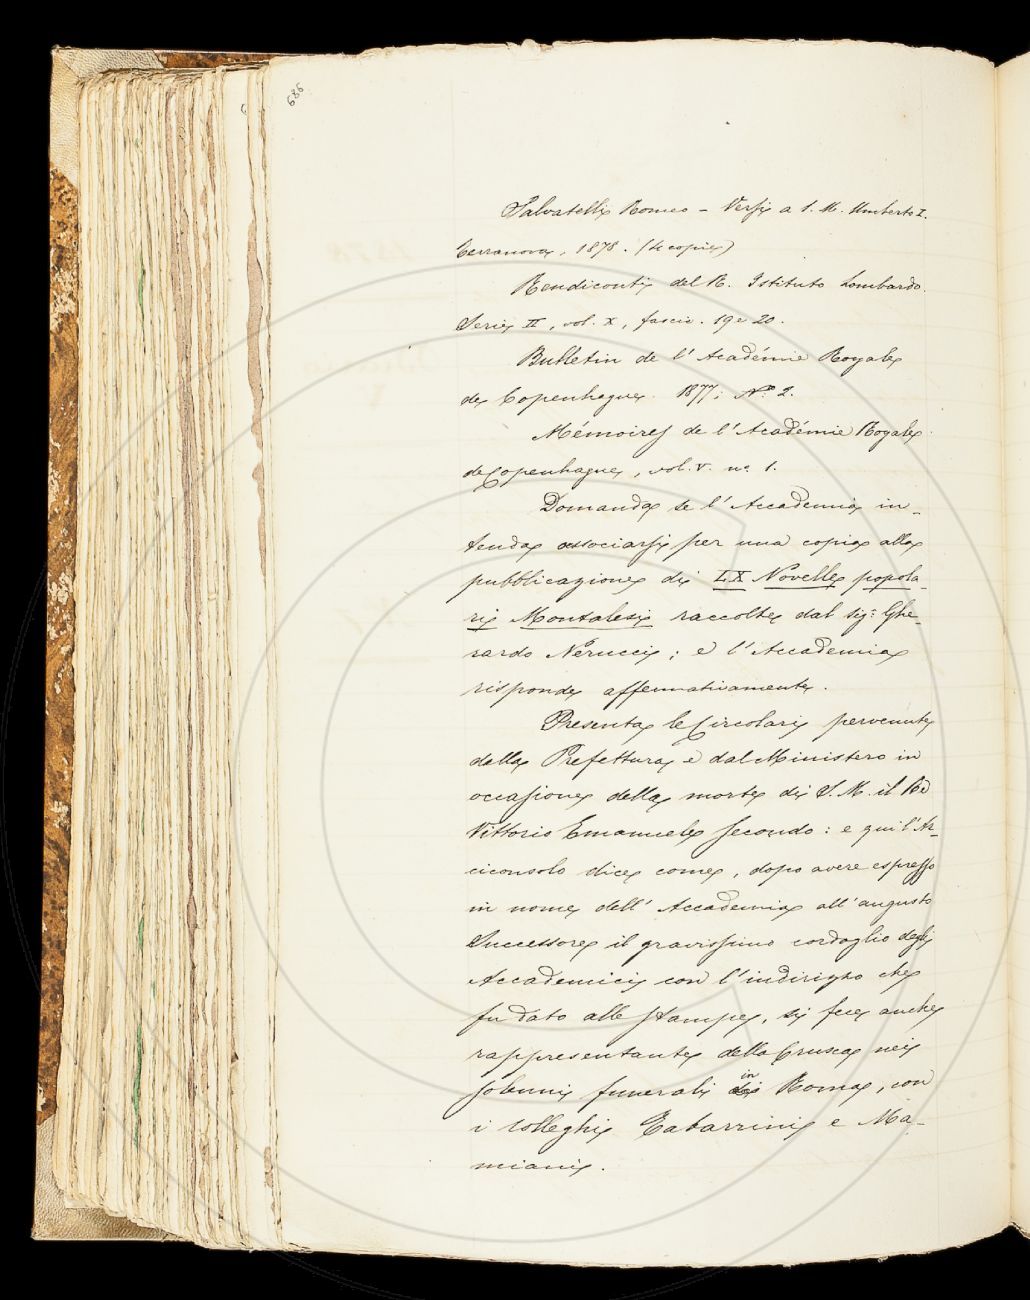 686
Salvatelli Romeo – Versi a S. M. Umberto I.
Terranova, 1878. (4 copie)
Rendiconti del R. Istituto Lombardo.
Serie II, vol. X, fascic. 19 e 20.
Bulletin de l'Académie Royale
de Copenhague. 1877; Nº 2.
Mémoires de l'Académie Royale
de Copenhague, vol. V. nº 1.
Domanda se l'Accademia in-
tenda associarsi per una copia alla
pubblicazione di LX Novelle popola-
ri Montalesi raccolte dal sig: Ghe-
rardo Nerucci; e l'Accademia
risponde affermativamente.
Presenta le Circolari pervenute
dalla Prefettura e dal Ministero in
occasione della morte di S. M. il Re
Vittorio Emanuele secondo: e qui l'Ar-
ciconsolo dice come, dopo avere espresso
in nome dell'Accademia all'augusto
Successore il gravissimo cordoglio degli
Accademici con l'indirizzo che
fu dato alle stampe, si fece anche
rappresentante della Crusca nei
solenni funerali in Roma, con
i colleghi Tabarrini e Ma-
miani.